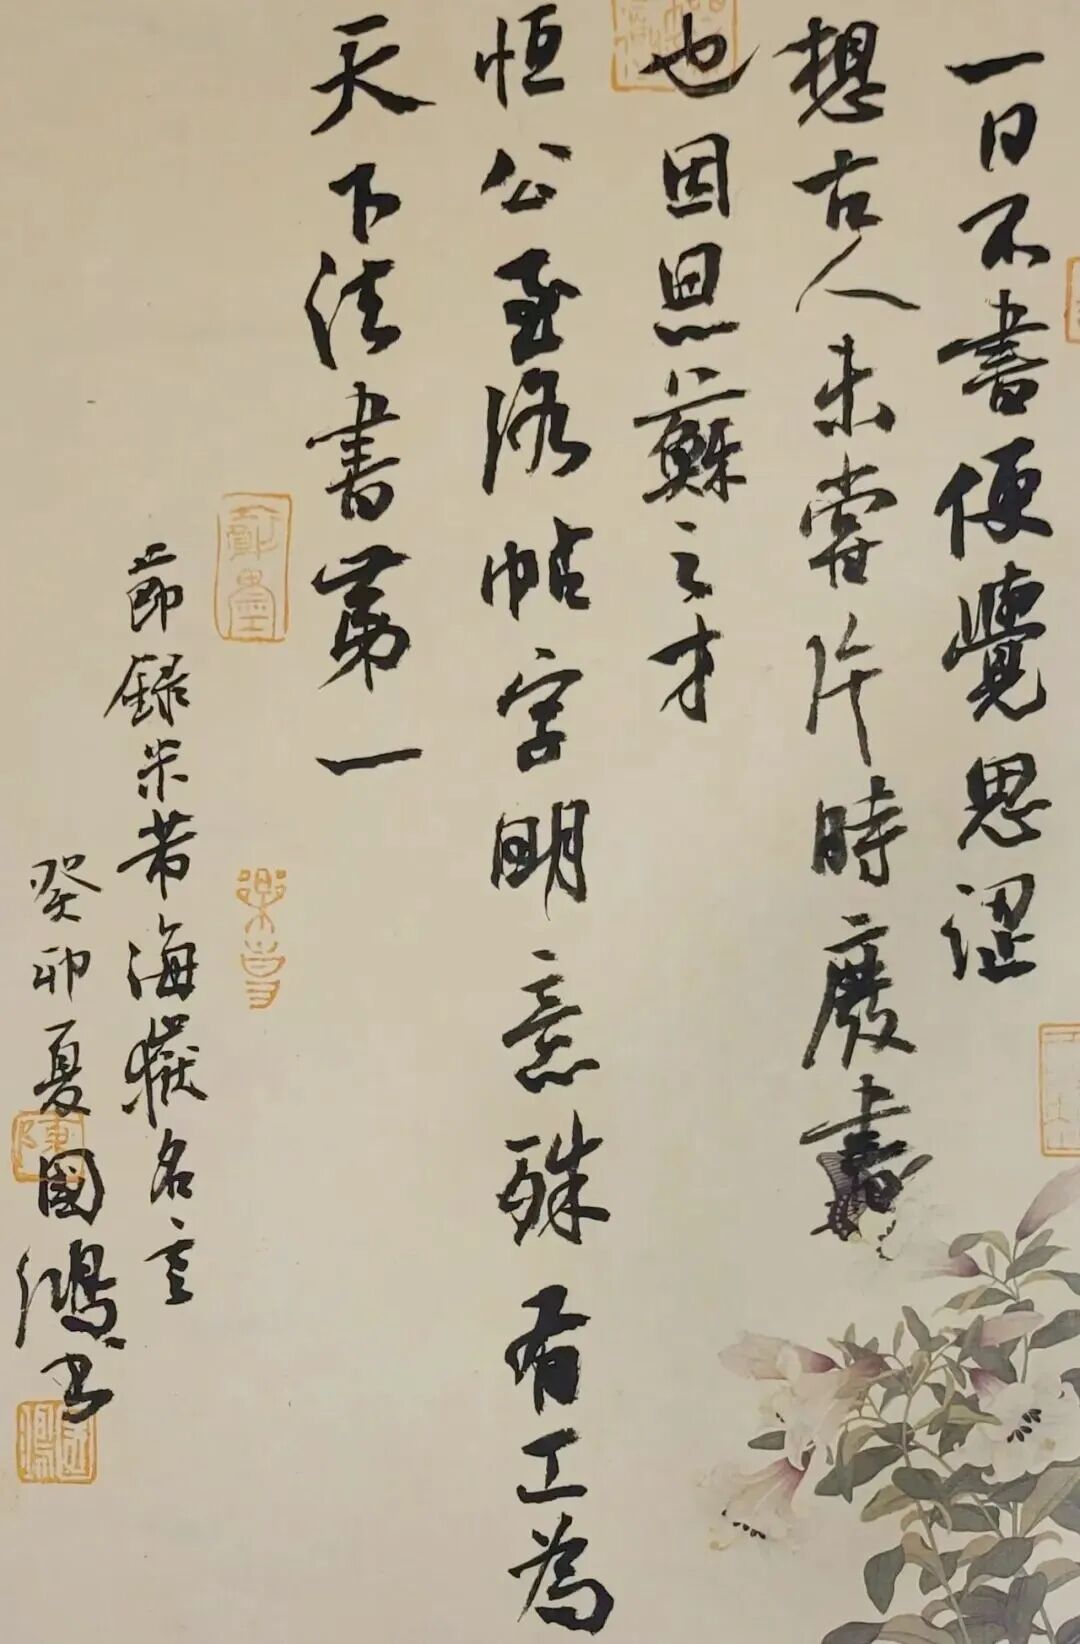 一日不書便覺思涩
想古人未嘗片時廢書
也因思蘇之才
恒公至洛帖字明意殊有工為
天下法書第一
節録米芾海嶽名言
癸卯夏國鴻书